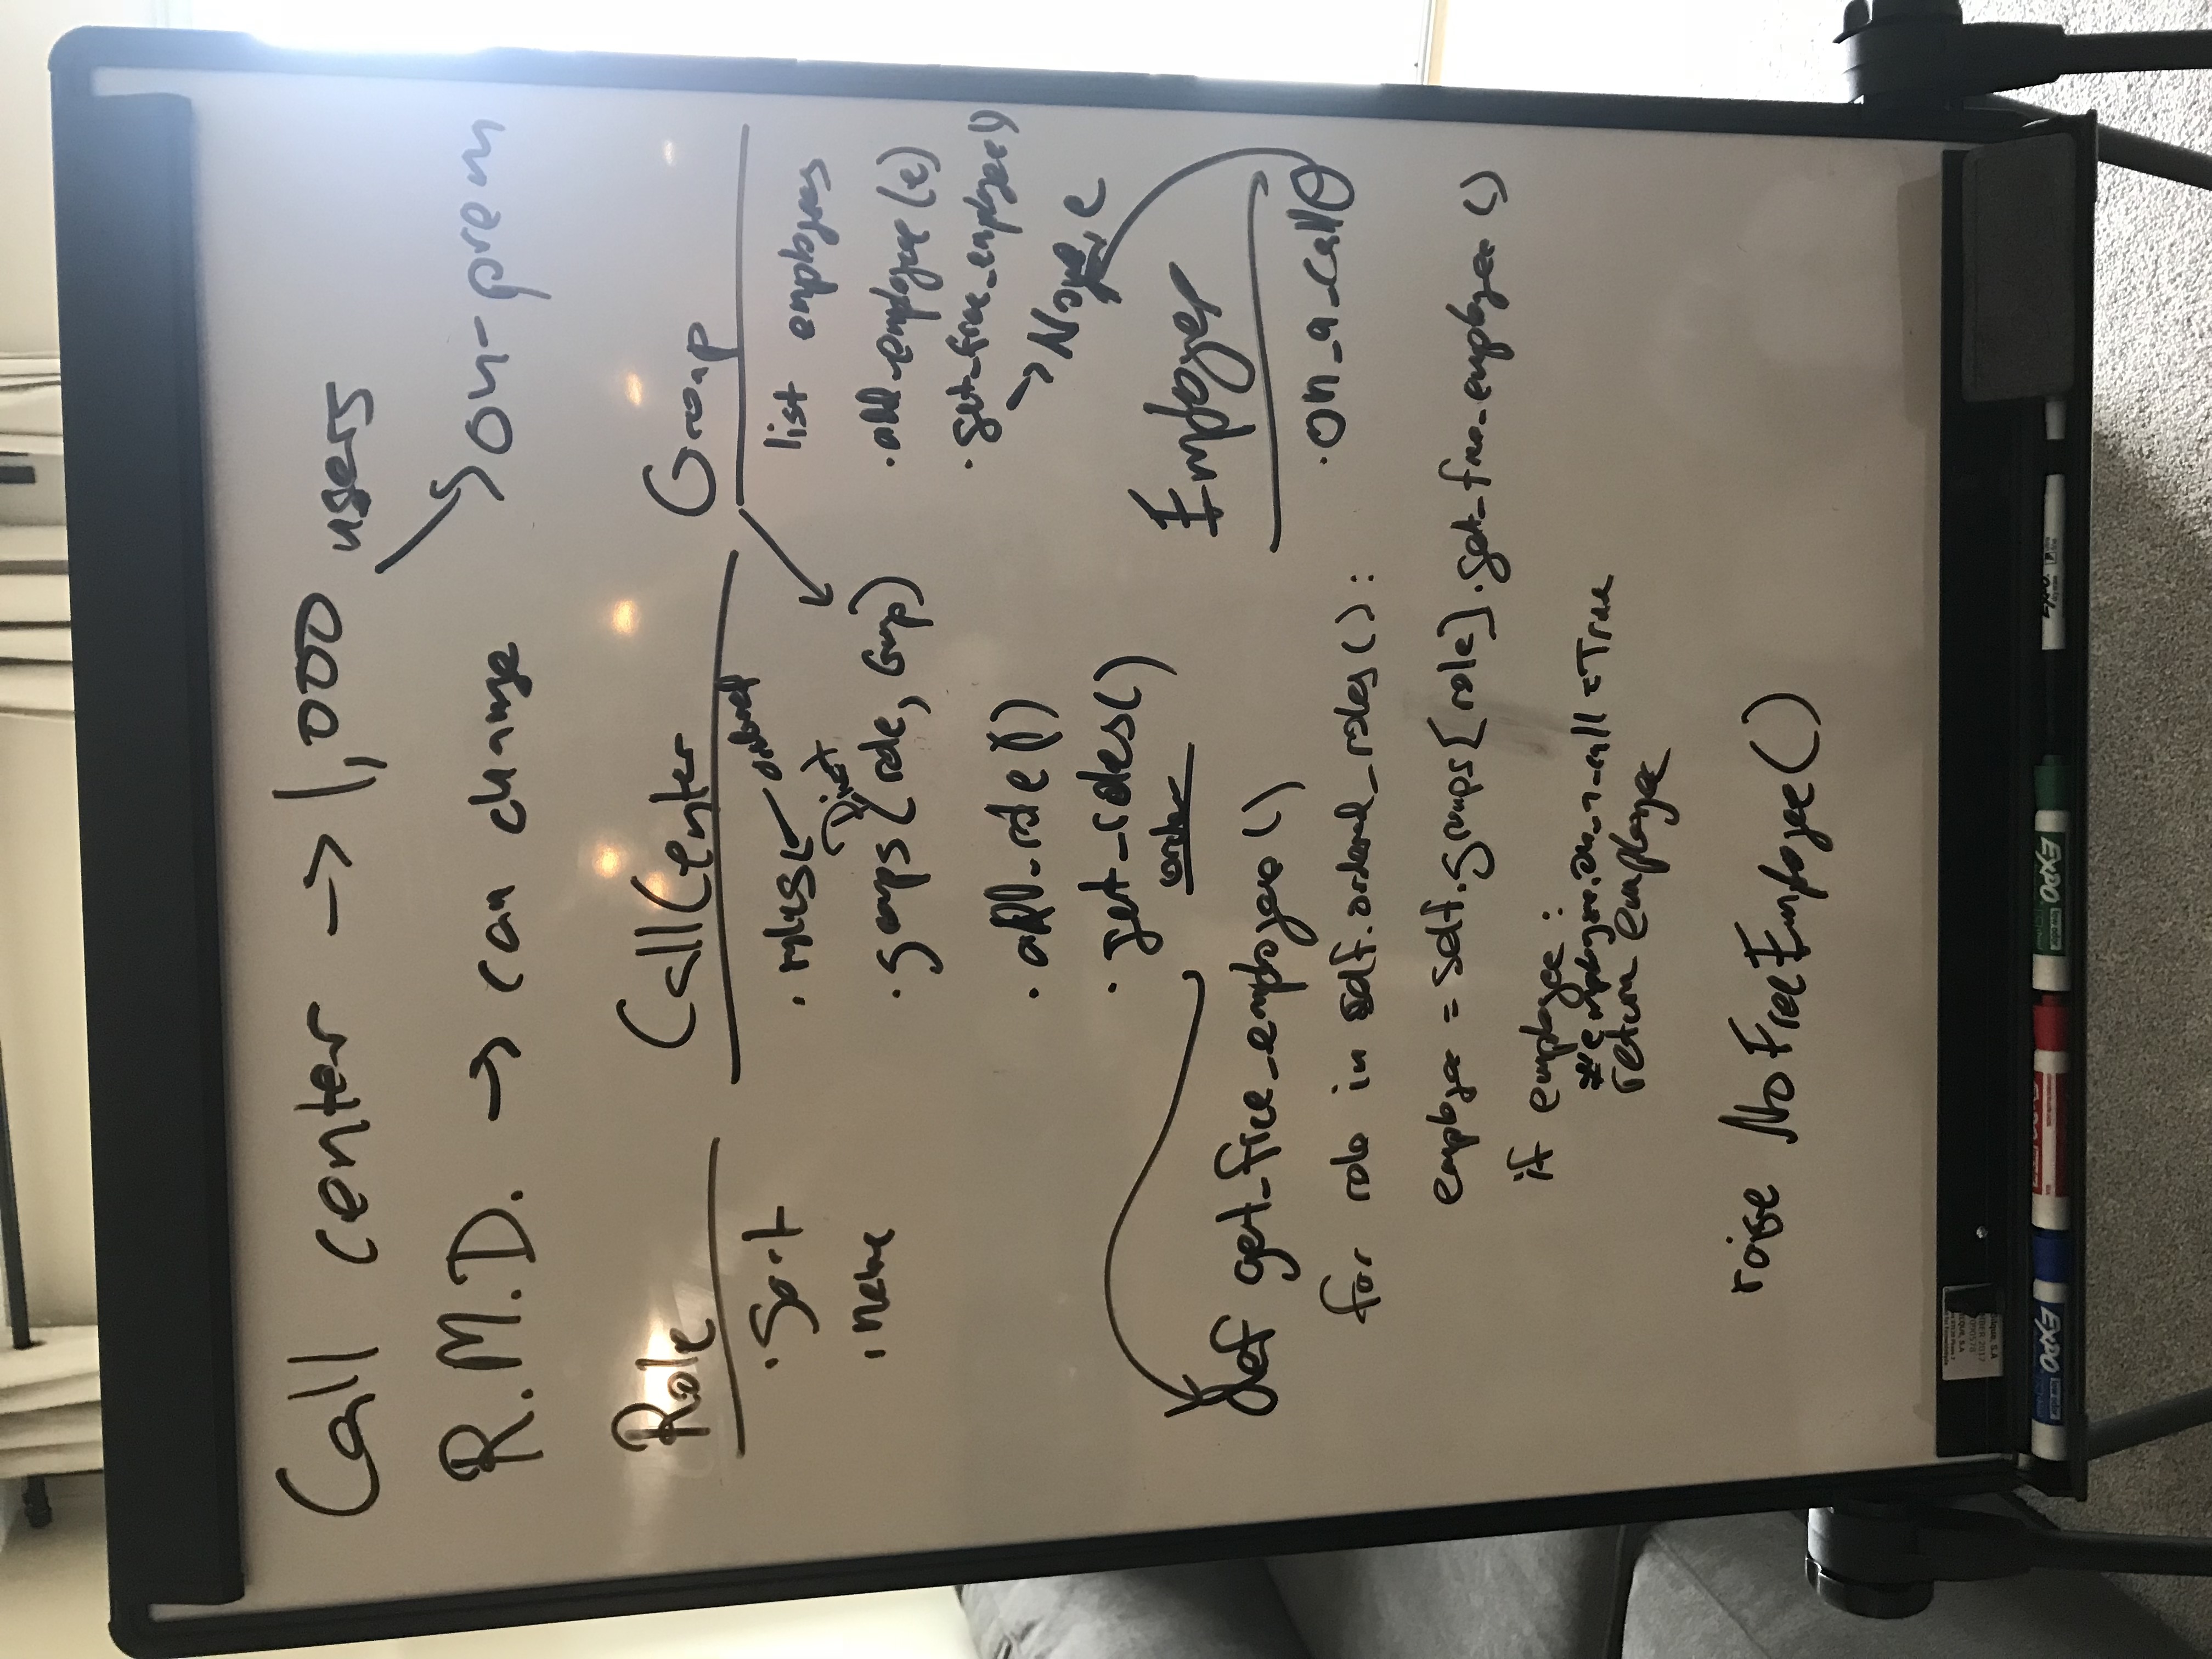 Call center -> 1,000 users
R.M.D. -> can change
on-prem
Role
· Sort
· name
CallCenter
· roles ordered
Dict
· groups (role, Group)
· add_role()
· get_roles()
order
Group
list employees
· add_employee(e)
· get_free_employee()
None, e
Employee
· on_a_call
def get_free_employee()
for role in self.ordered_roles():
employee = self.groups[role].get_free_employee()
if employee:
employee.on_a_call = True
return employee
raise NoFreeEmployee()
EXPO
low odor
EXPO
low odor
EXPO